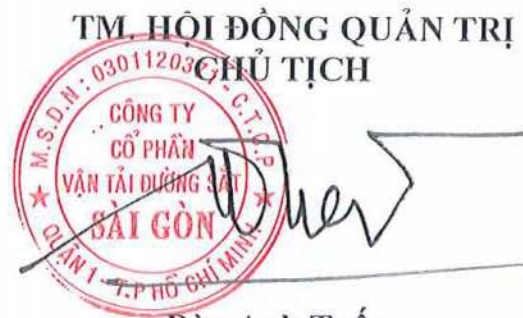 TM. HỘI ĐỒNG QUẢN TRỊ
CHỦ TỊCH
M.S.D.N: 0301120371 - C.T.C.P
CÔNG TY
CỔ PHẦN
VẬN TẢI ĐƯỜNG SẮT
SÀI GÒN
QUẬN 1 - T.P HỒ CHÍ MINH